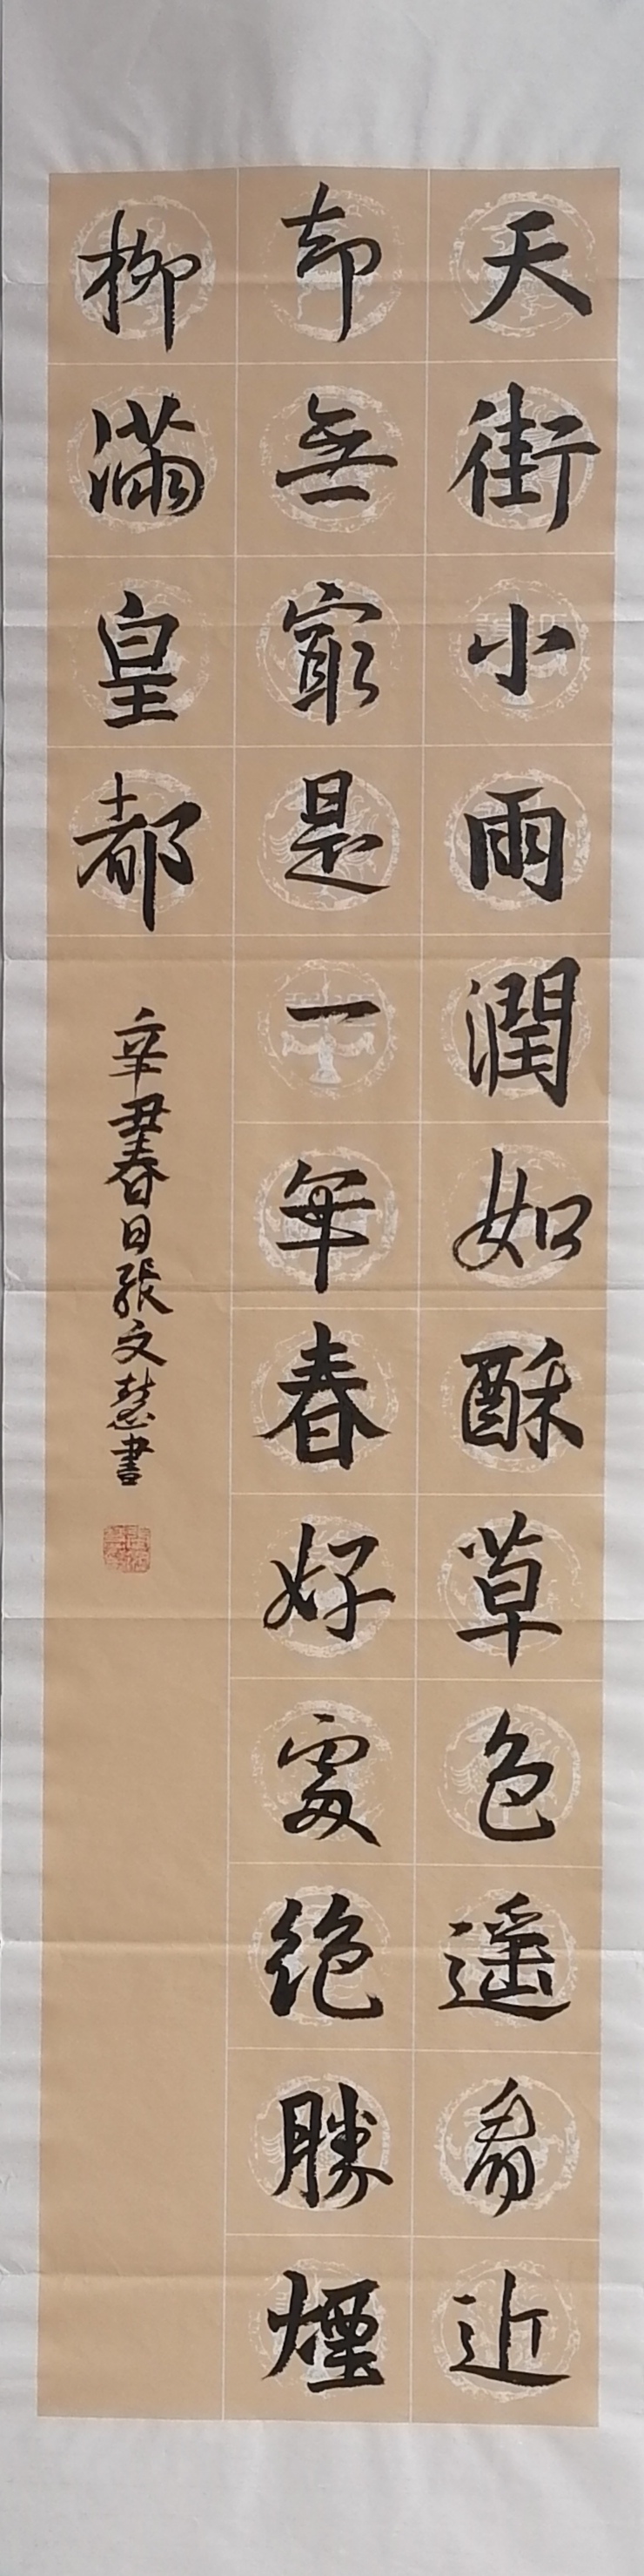 天街小雨潤如酥草色遥看近
却無寂是一年春好處絕勝煙
柳滿皇都
辛丑春日張文慧書